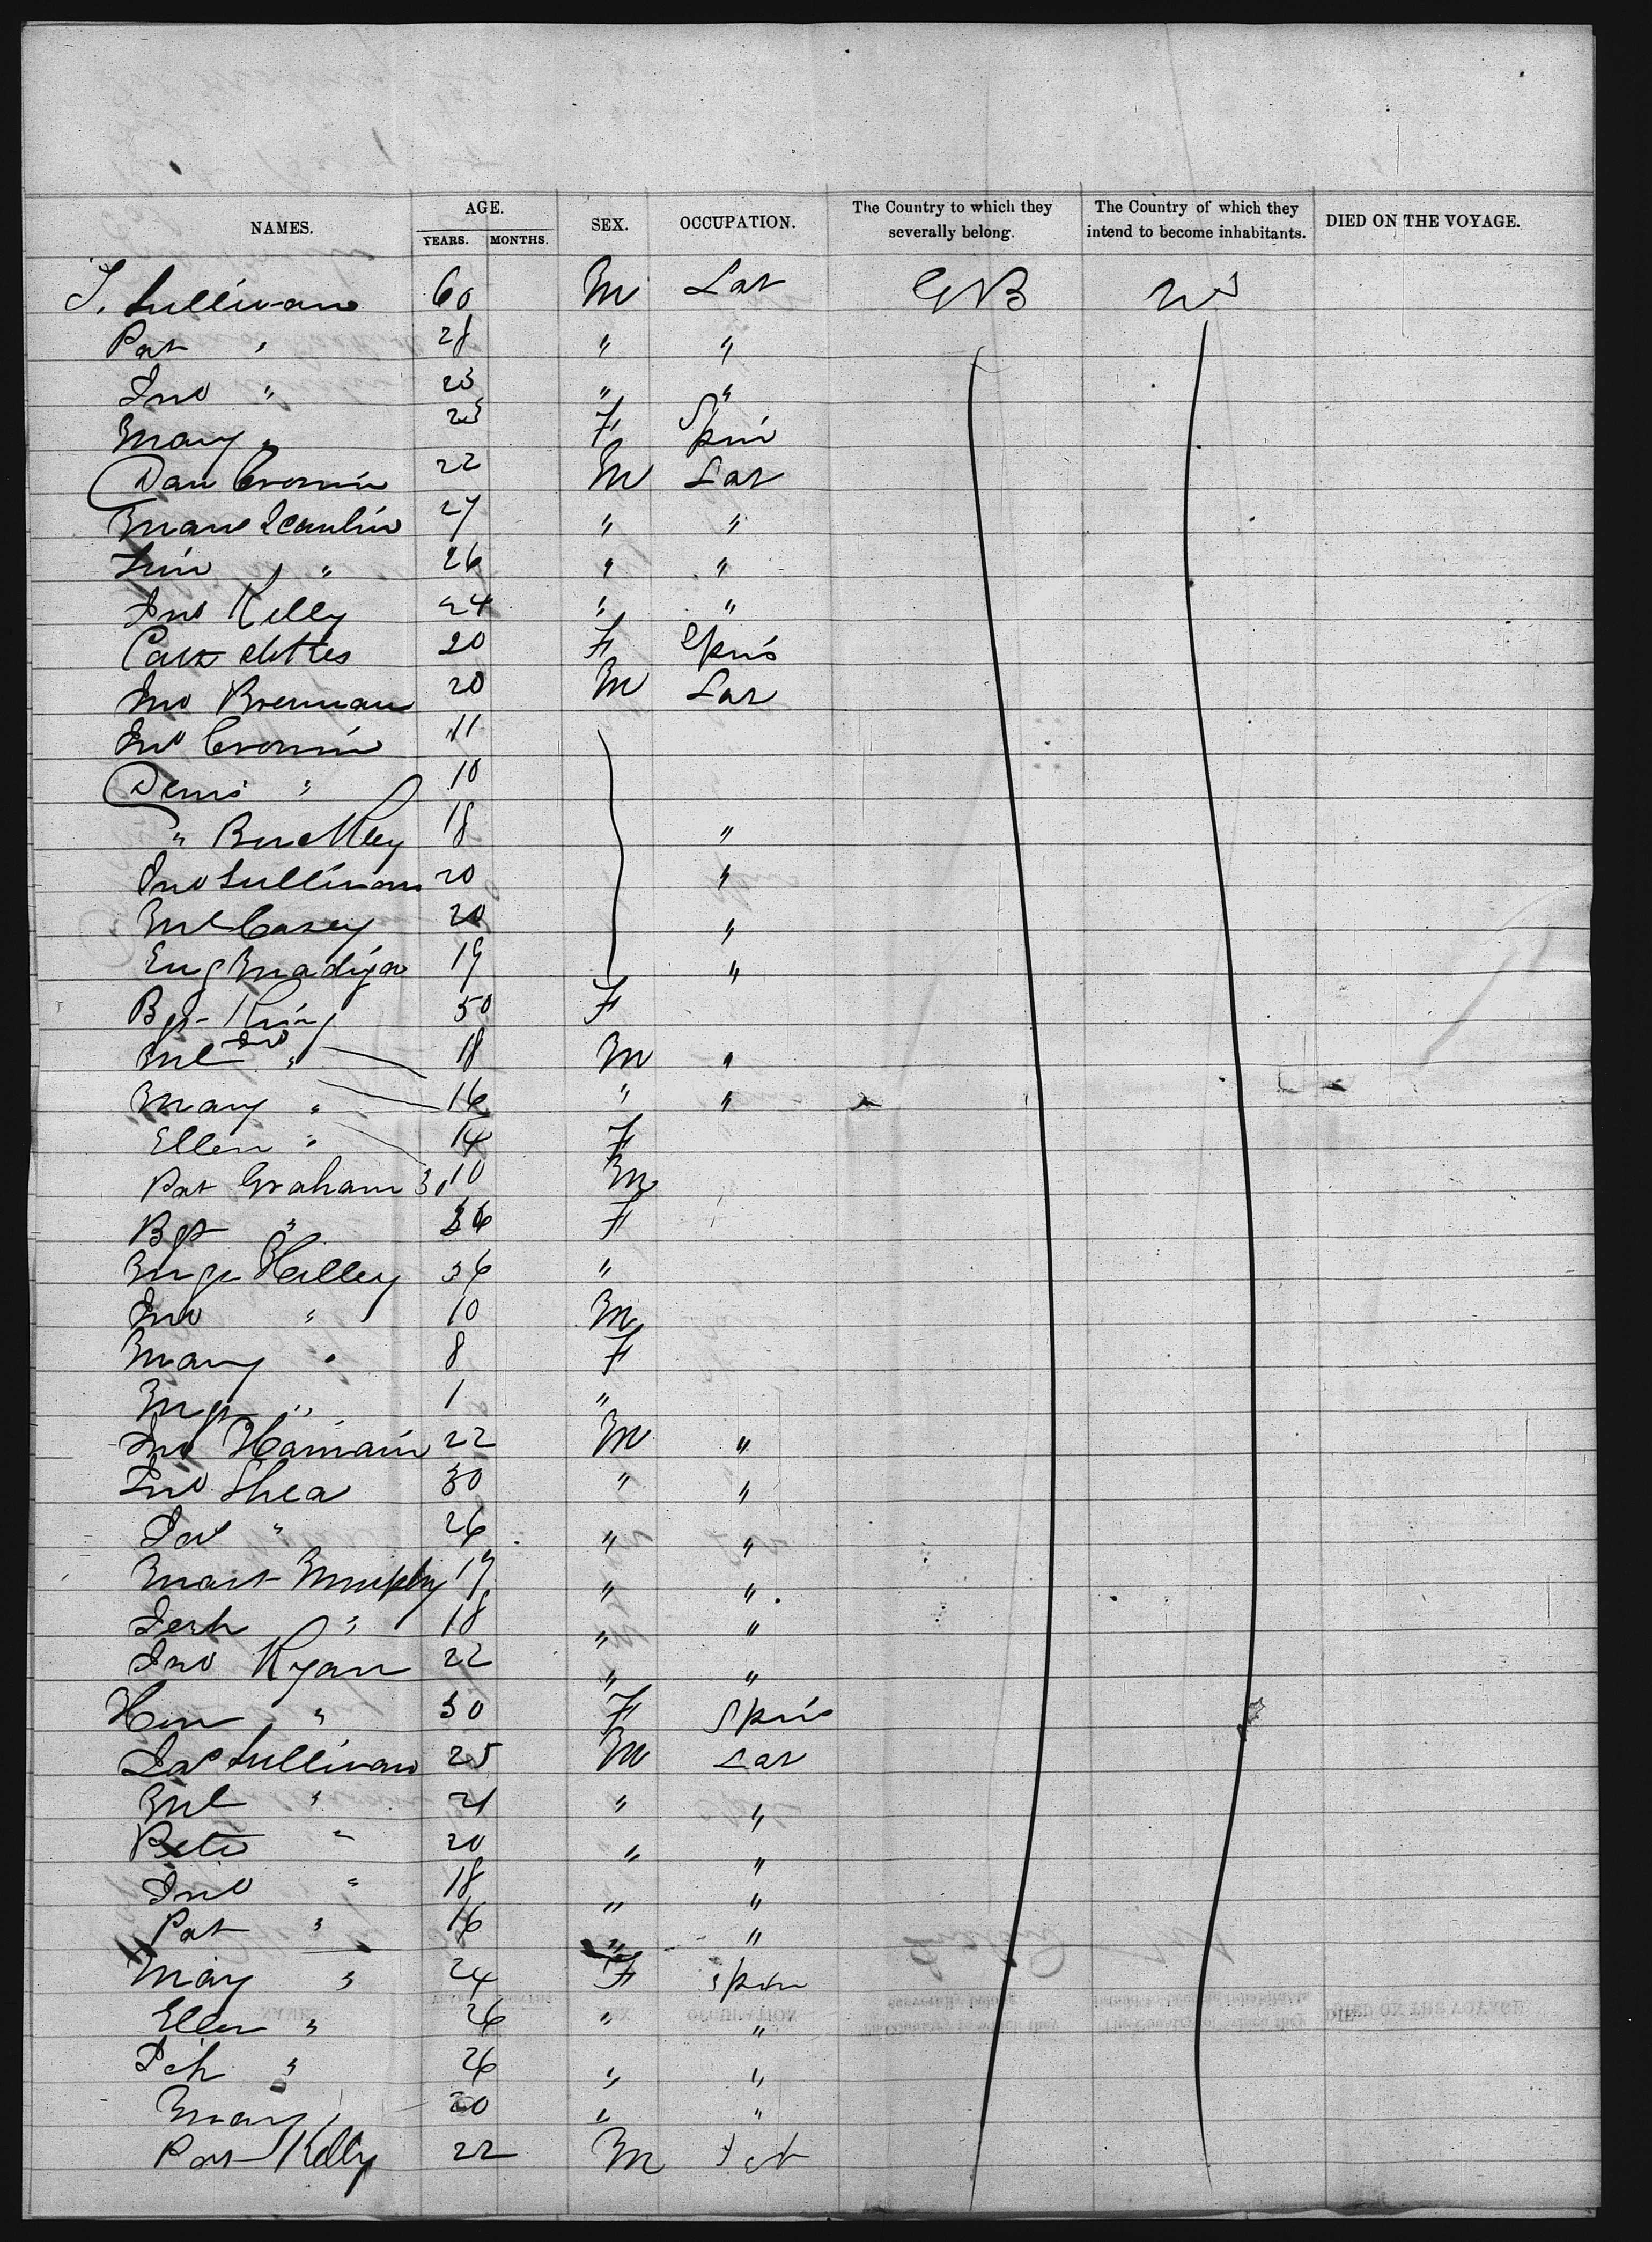 NAMES. AGE. SEX. OCCUPATION. The Country to which they severally belong. The Country of which they intend to become inhabitants. DIED ON THE VOYAGE.
YEARS. MONTHS.
J. Sullivan 60 M Lab GB US
Pat " 28 " "
Jno " 23 " "
Mary " 23 F Spin
Dan Cronin 22 M Lab
Maur Scanlin 27 " "
" 26 " "
Jno Kelly 24 " "
Cath 20 F Spin
Jno Brennan 20 M Lab
Jno Cronin 11
Denis " 10
" Buckley 18 "
Jno Sullivan 20 "
Ml Casey 20 "
Eug Madigan 19 "
Bgt King 50 F
Ml Jno " 18 M "
Mary " 16 " "
Ellen " 14 F
Pat Graham 30 10 M
Bgt " 36 F
Mgt Hilley 36 "
Jno " 10 M
Mary " 8 F
Mgt " 1 "
Jno 22 M "
Jno Shea 30 " "
Jas " 26 " "
Mart Murphy 19 " "
Jerh " 18 " "
Jno Ryan 22 " "
Hon " 30 F Spin
Jas Sullivan 25 M Lab
Ml " 21 " "
Pete " 20 " "
Jno " 18 " "
Pat " 16 " "
Mary " 24 F Spin
Ellen " 26 " "
" 26 " "
Mary 20 " "
Pat Kelly 22 M Lab